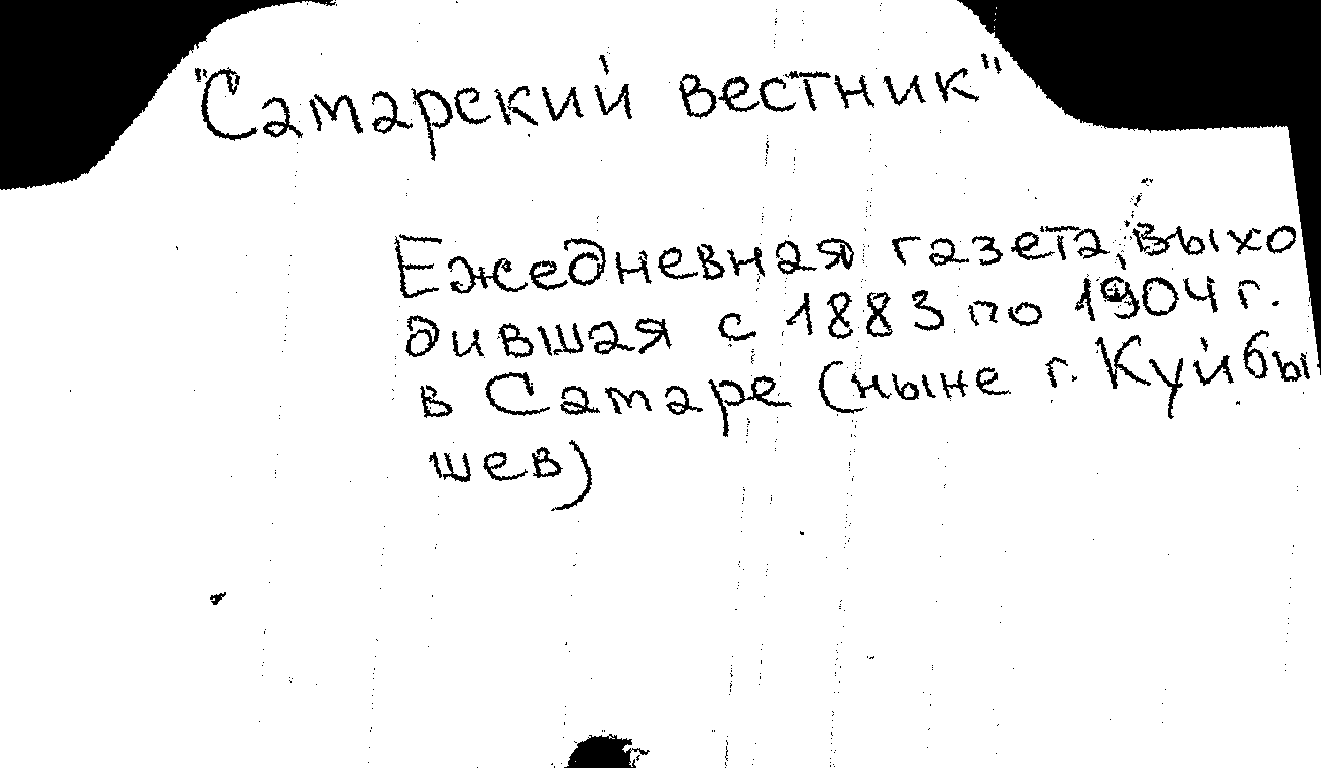 "Самарский вестник"
Ежедневная газета, выхо
дившая с 1883 по 1904 г.
в Самаре (ныне г. Куйбы
шев)